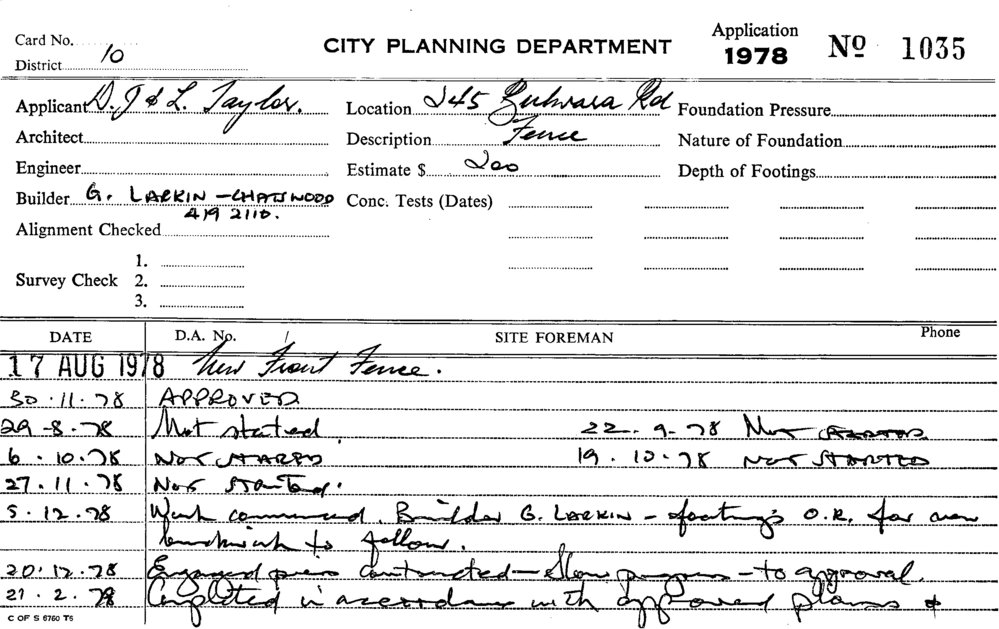 Card No.
District 10
CITY PLANNING DEPARTMENT
Application
1978
Nº 1035
Applicant D. J & L. Taylor.
Location 245 Rd
Foundation Pressure
Architect
Description Fence
Nature of Foundation
Engineer
Estimate $ 200
Depth of Footings
Builder G. LARKIN - CHATSWOOD
419 2110.
Conc. Tests (Dates)
Alignment Checked
1.
Survey Check 2.
3.
DATE D.A. No. / SITE FOREMAN Phone
17 AUG 1978 New Front Fence.
30.11.78 APPROVED
29-8.78 Not started. 22.9.78 Not STARTED
6.10.78 NOT STARTED 19.10.78 NOT STARTED
27.11.78 Not STARTED.
5.12.78 Work commenced. Builder G. LARKIN - footings O.K. for new
brickwork to follow.
20.12.78 Engaged piers constructed - Slow progress - to approval.
21.2.78 Completed in accordance with approved plans &
C OF S 6760 T6